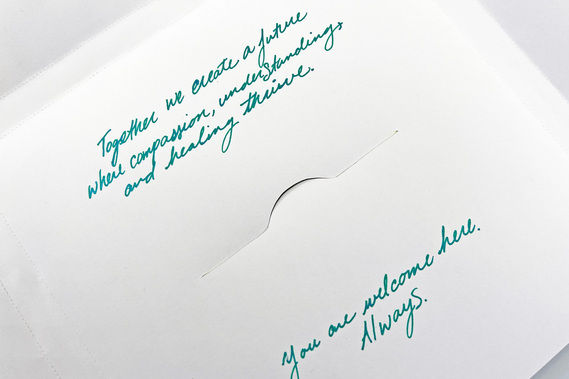 Together we create a future
where compassion, understanding,
and healing thrive.
You are welcome here.
Always.